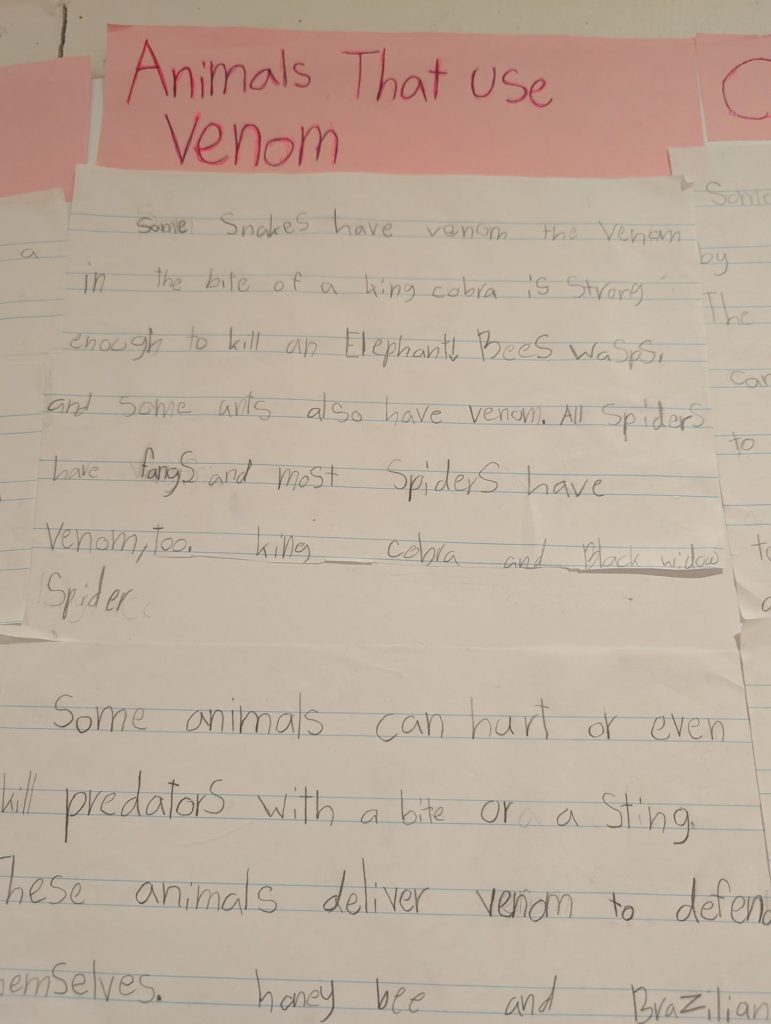 Animals That use
Venom
Some Snakes have venom the Venom
in the bite of a king cobra is Strong
enough to kill an Elephant! Bees Wasps,
and some ants also have venom. All Spiders
have fangs and most Spiders have
Venom, too. king cobra and Black widow
Spider
Some animals can hurt or even
kill predators with a bite or a Sting.
These animals deliver venom to defend
hemselves. honey bee and Brazilian
a
C
Some
by
The
car
to